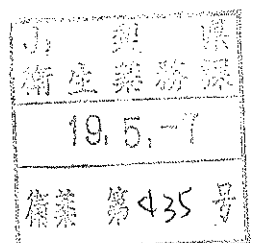 山梨県
衛生薬務課
19.5.-7
衛薬 第435号